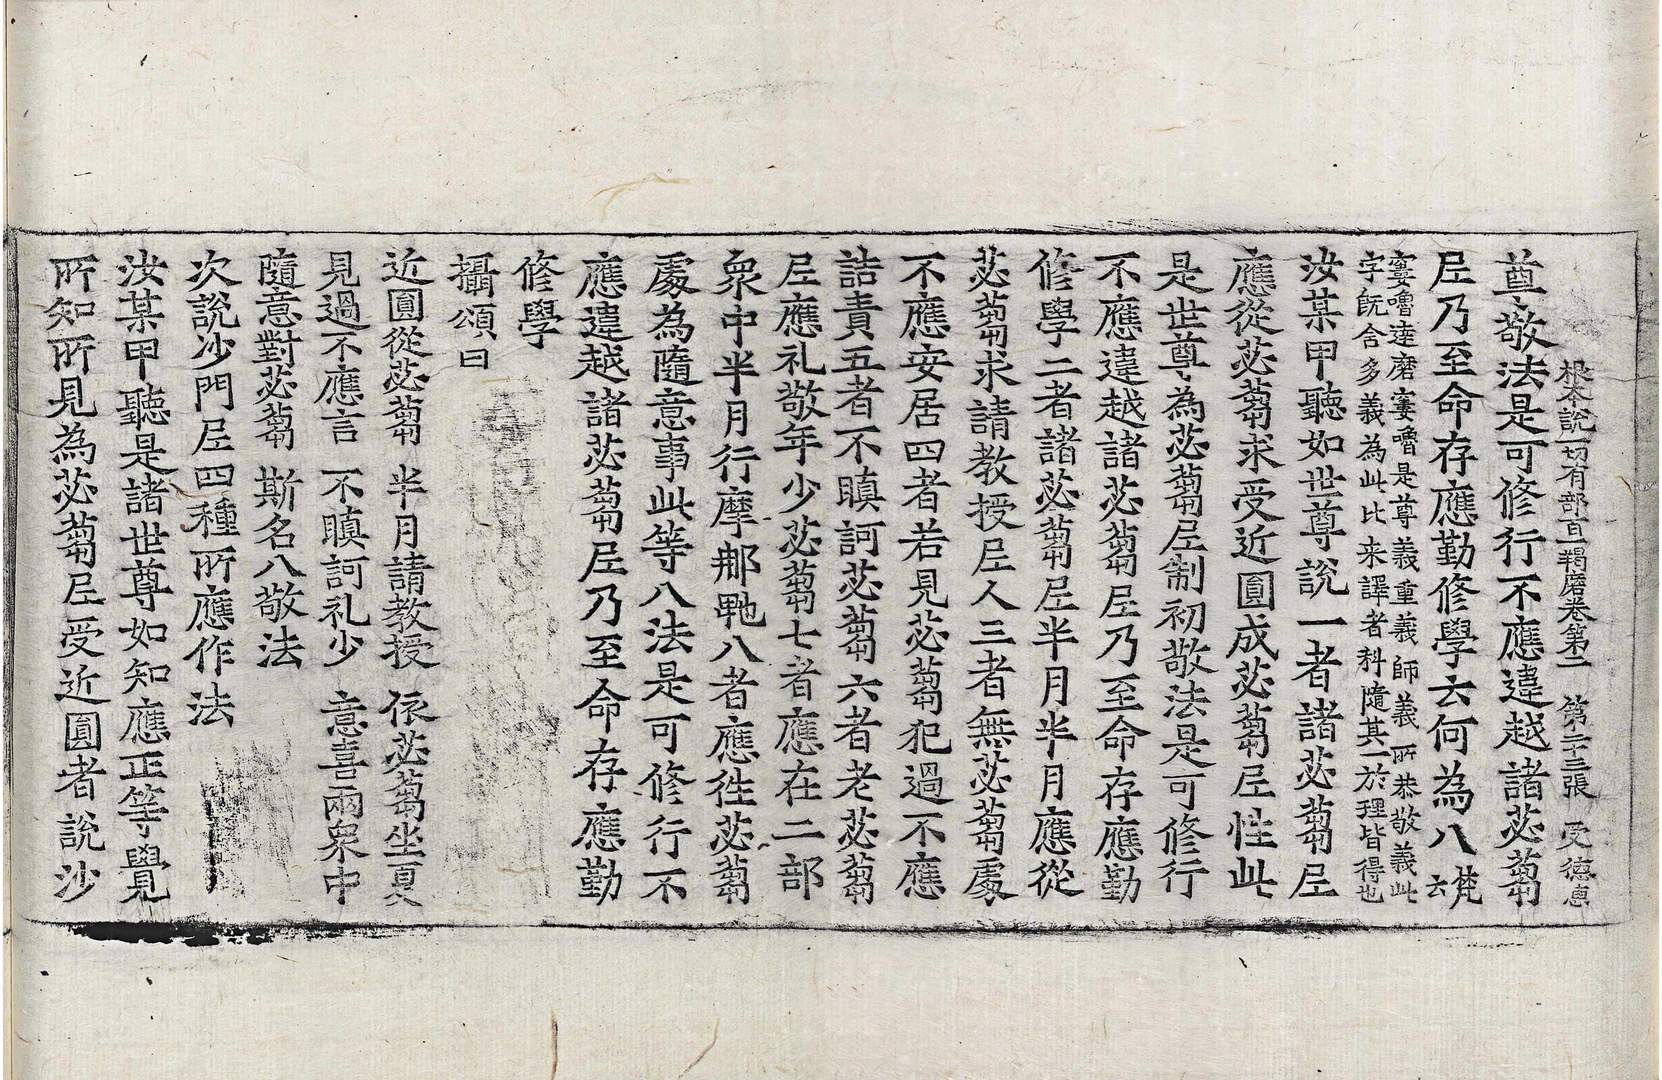 根本說一切有部百一羯磨卷第二 第二十三張 受 德惠
尊敬法是可修行不應違越諸苾蒭
尼乃至命存應勤修學云何為八 梵云
窶嚕達磨窶嚕是尊義重義師義所恭敬義此
字旣含多義為此比来譯者科隨其一於理皆得也
汝某甲聽如世尊說一者諸苾蒭尼
應從苾蒭求受近圓成苾蒭尼性此
是世尊為苾蒭尼制初敬法是可修行
不應違越諸苾蒭尼乃至命存應勤
修學二者諸苾蒭尼半月半月應從
苾蒭求請教授尼人三者無苾蒭處
不應安居四者若見苾蒭犯過不應
詰責五者不瞋訶苾蒭六者老苾蒭
尼應礼敬年少苾蒭七者應在二部
衆中半月行摩那䭾八者應徃苾蒭
處為隨意事此等八法是可修行不
應違越諸苾蒭尼乃至命存應勤
修學
攝頌曰
近圓從苾蒭 半月請教授 依苾蒭坐夏
見過不應言 不瞋訶礼少 意喜兩衆中
隨意對苾蒭 斯名八敬法
次說沙門尼四種所應作法
汝某甲聽是諸世尊如知應正等覺
所知所見為苾蒭尼受近圓者說沙